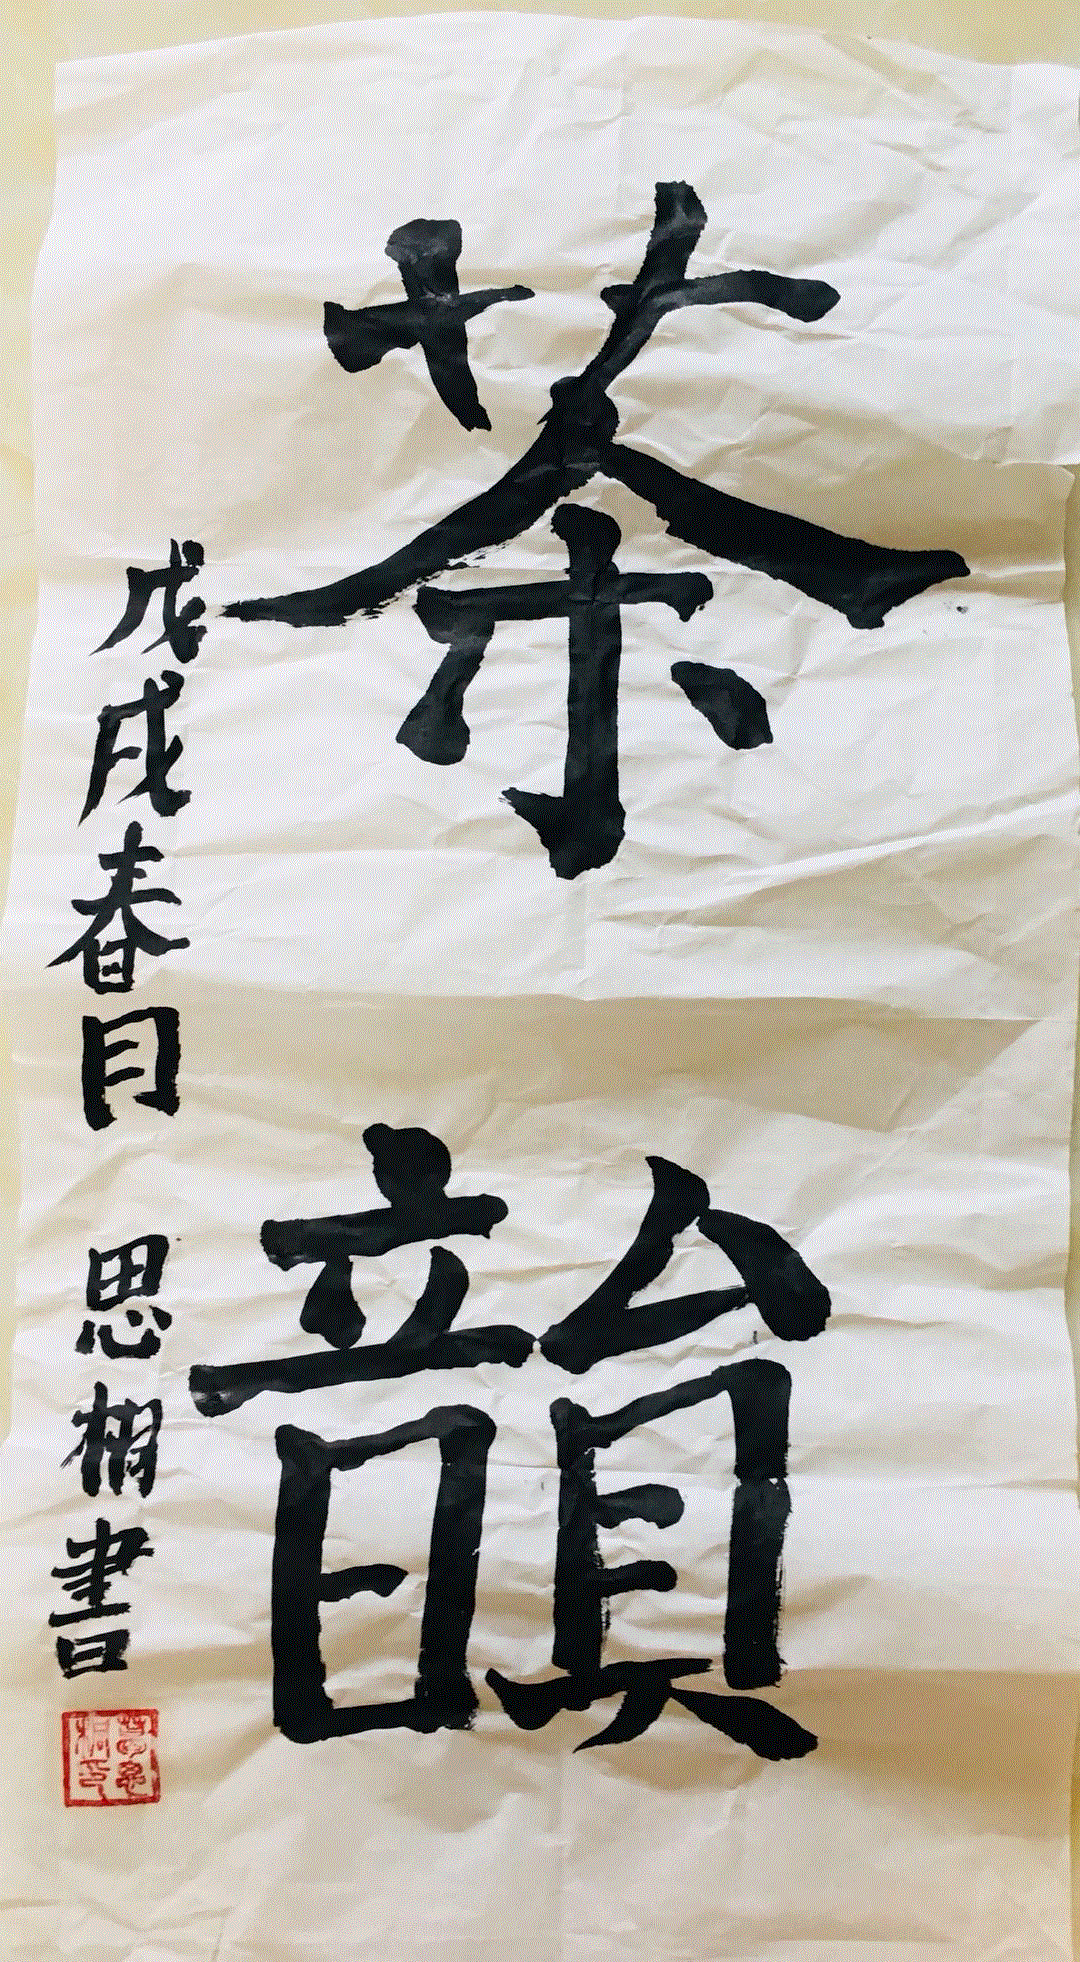 茶韻
戊戌春月 思桐書